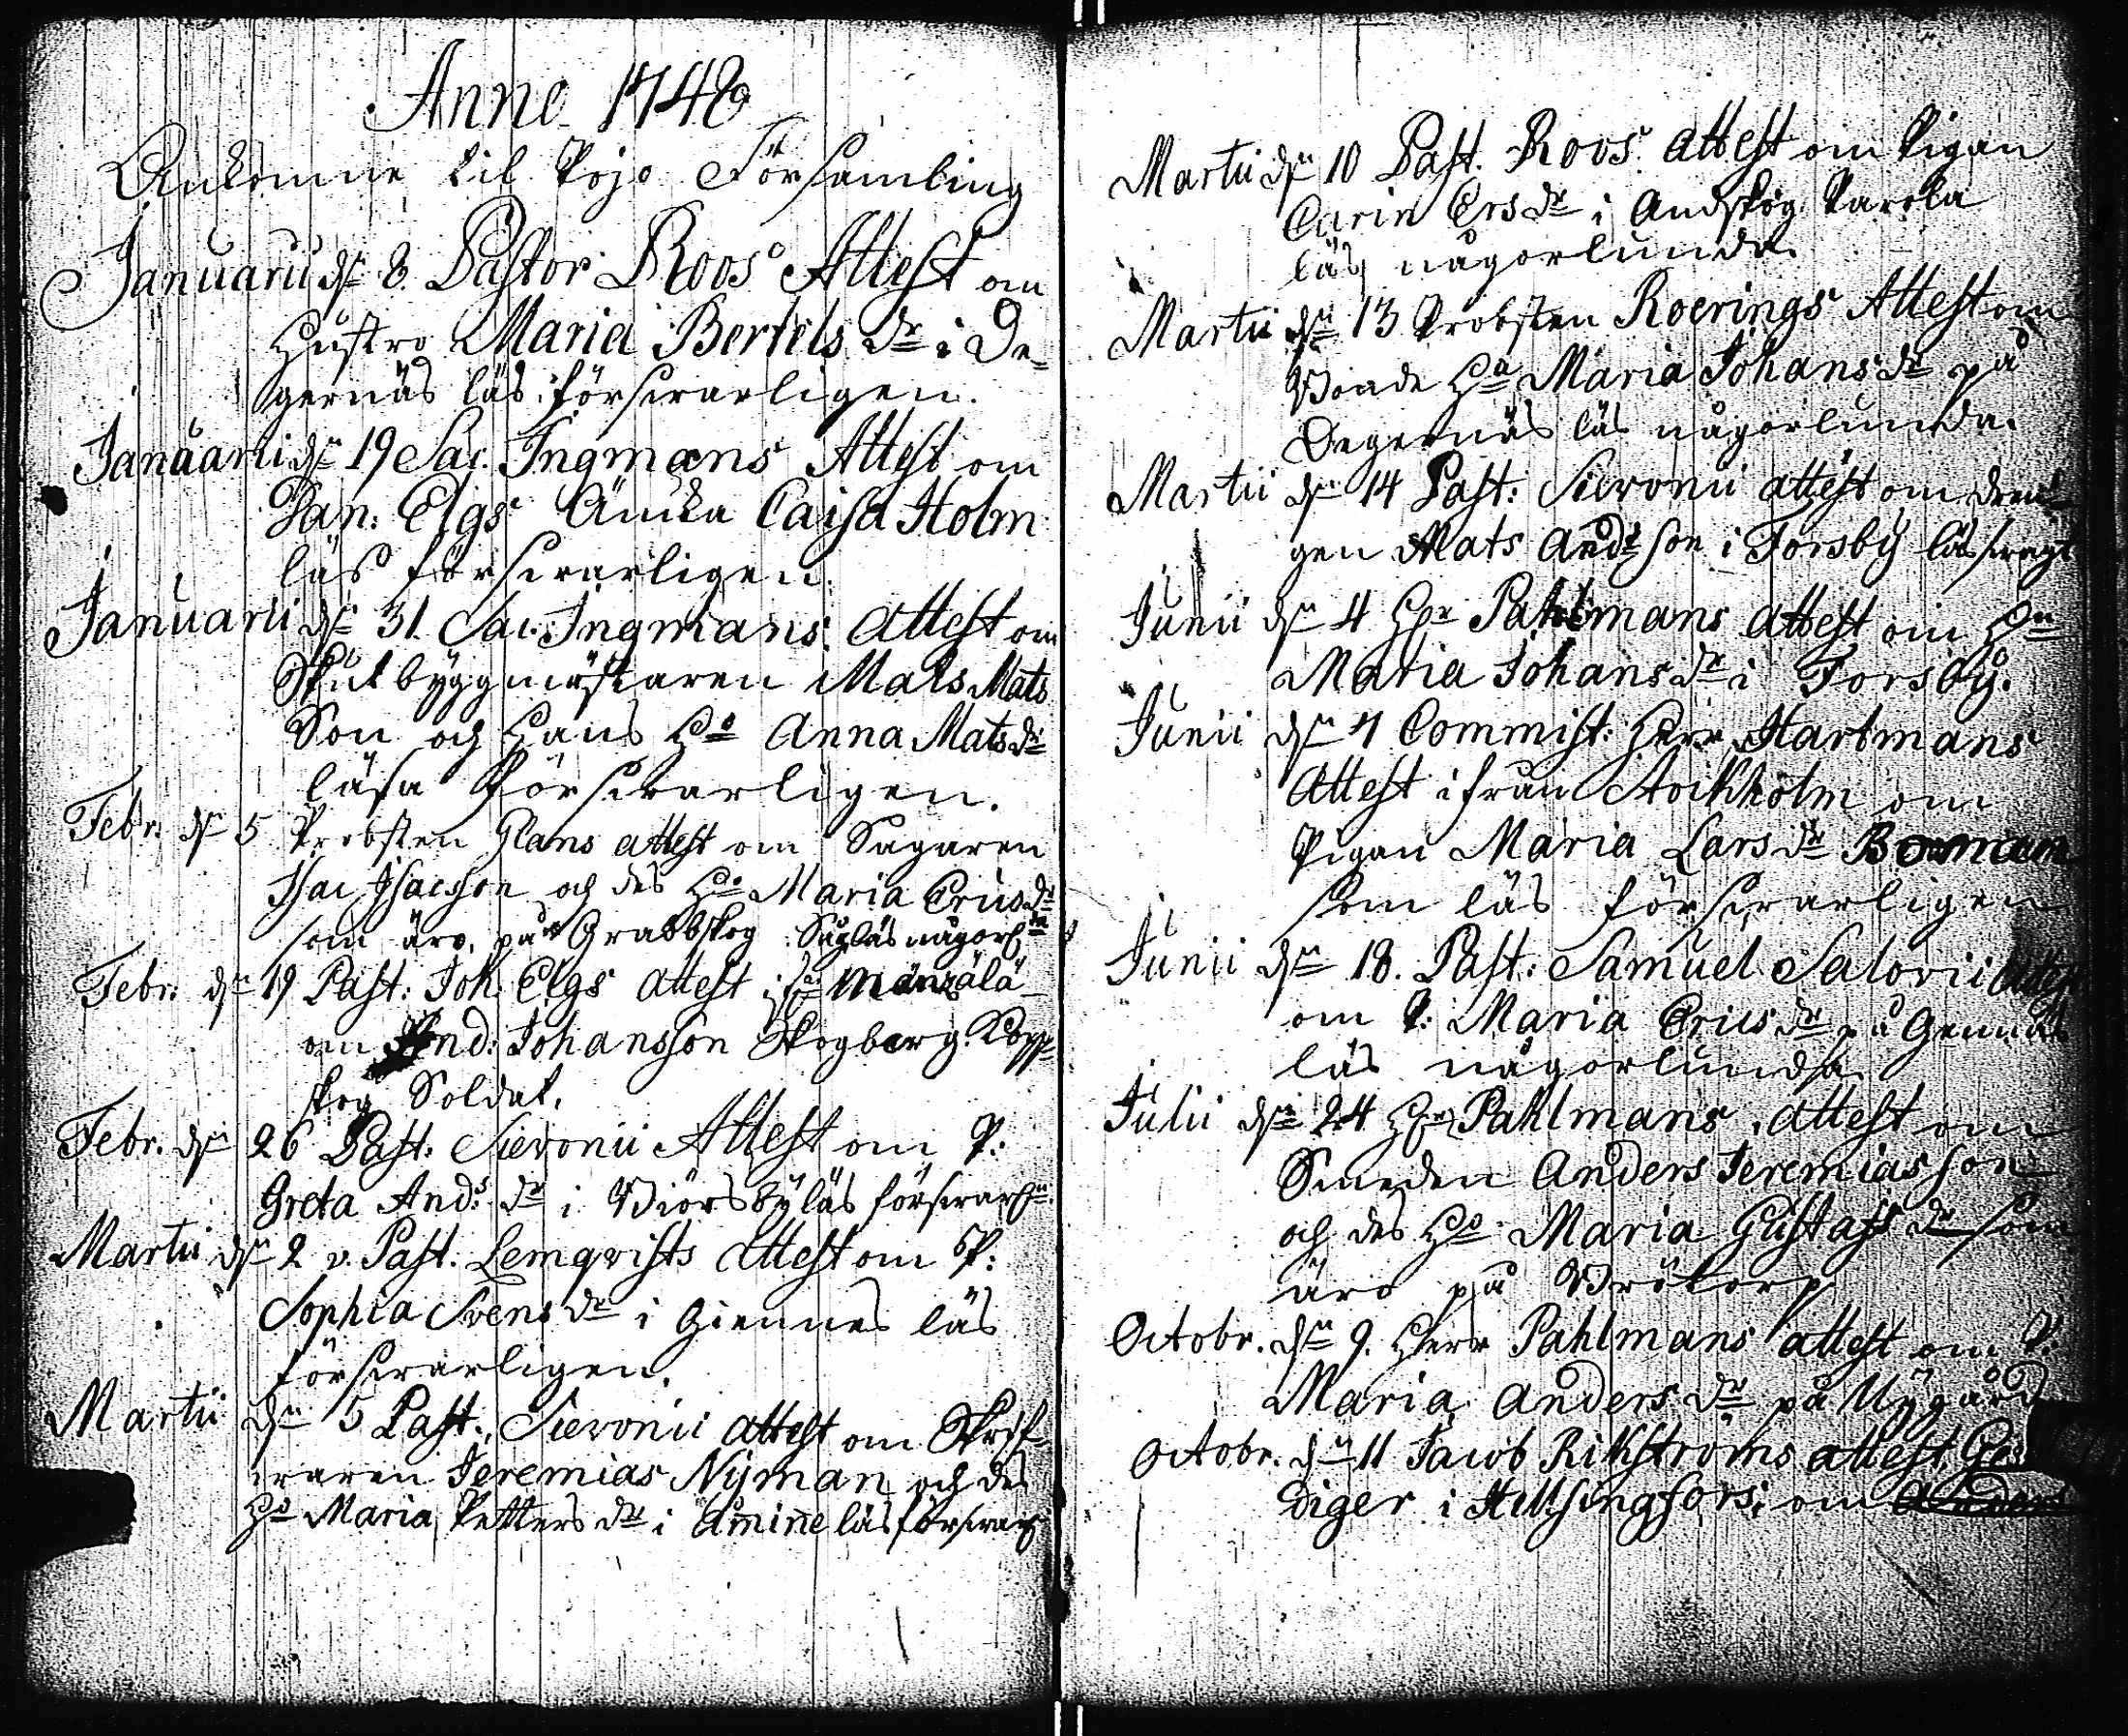 Anno 1748
Ankomne til Pojo Församling
Januarii dn 8 Pastor Roos Attest om
Hustro Maria Bertels dr i De-
gernäs läs: försvarligen.
Januarii dn 19 Sac. Ingmans Attest om
Dan: Elgs Änkia Caisa Holm
läs försvarligen.
Januarii dn 31. Sac. Ingmans attest om
Skutbyggmästaren Mats Mats
Son och Hans Ho Anna Mats dr
läsa försvarligen.
Febr. dn 5 Probsten Glans attest om Sagaren
Isac Isacsson och des Ho Maria Erics dr
som äro på Grabbskog läs någorl
Febr. dn 19 Past: Joh. Elgs attest i Mänzälä
om And: Johansson Skogberg. Kopp-
skog Soldat.
Febr. dn 26 Past: Sieronii Attest om P:
Greta And:s dr i Biörsby läs försvarl
Martii dn 2 v. Past. Lemqvists attest om P:
Sophia Svens dr i Giennes läs
försvarligen.
Martii dn 5 Past. Sieronii attest om
Jeremias Nyman och des
Ho Maria Petters dr i Åminne läs försvarl
Martii dn 10 Past. Roos attest om Pigan
Carin Ers dr i Andskog
läs någorlunda.
Martii dn 13 Probsten Roerings Attest om
Bonde Ha Maria Johans dr på
Degernäs läs någorlunda.
Martii dn 14 Past: Sieronii attest om dren-
gen Mats Andsson i Forsby läs svagt
Junii dn 4 Hr Pahlmans attest om
Maria Johans dr i Forsby.
Junii dn 7 Commist: Herr Hartmans
Attest ifrån Stockholm om
Pigan Maria Lars dr Borman
som läs försvarligen
Junii dn 18. Past: Samuel Salovii attest
om P: Maria Erics dr på Gennäs
läs någorlunda
Julii dn 24 Hr Pahlmans attest om
Smeden Anders Jeremiasson
och des Ho Maria Gustafs dr som
äro på Brötorp
Octobr. dn 9. Herr Pahlmans attest om P.
Maria Anders dr på Nygård
Octobr. dn 11 Jacob Rikströms attest
diger i Hellsingfors; om Anders